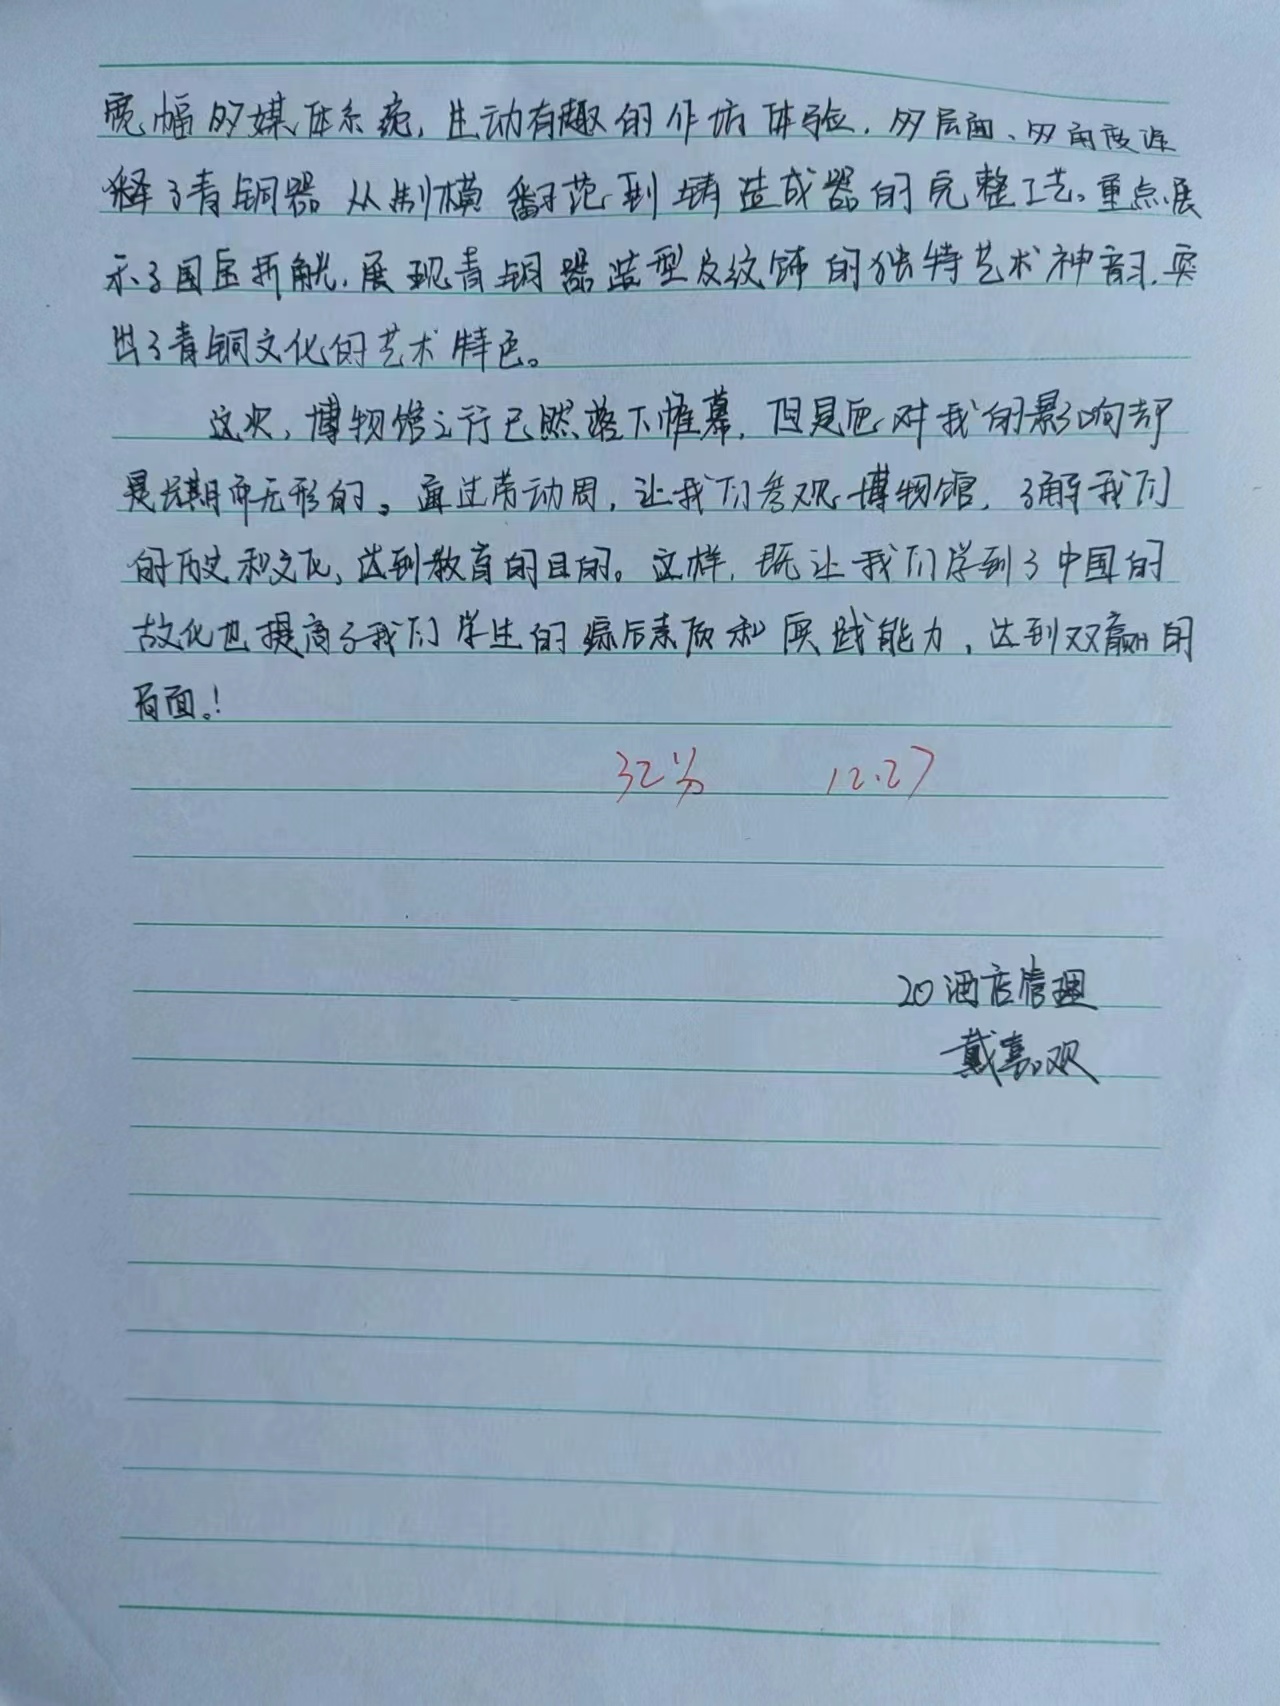 宽幅多媒体系统，生动有趣的作坊体验，多层面、多角度诠
释了青铜器从制模翻范到铸造成器的完整工艺。重点展
示了国宝折觥，展现青铜器造型及纹饰的独特艺术神韵，突
出了青铜文化的艺术特色。
这次，博物馆之行已然落下帷幕，但是他对我的影响却
是长期而无形的。通过劳动周，让我们参观博物馆，了解我们
的历史和文化，达到教育的目的。这样，既让我们学到了中国的
故化也提高了我们学生的综合素质和实践能力，达到双赢的
局面。！
32分 12.27
20酒店管理
戴嘉观